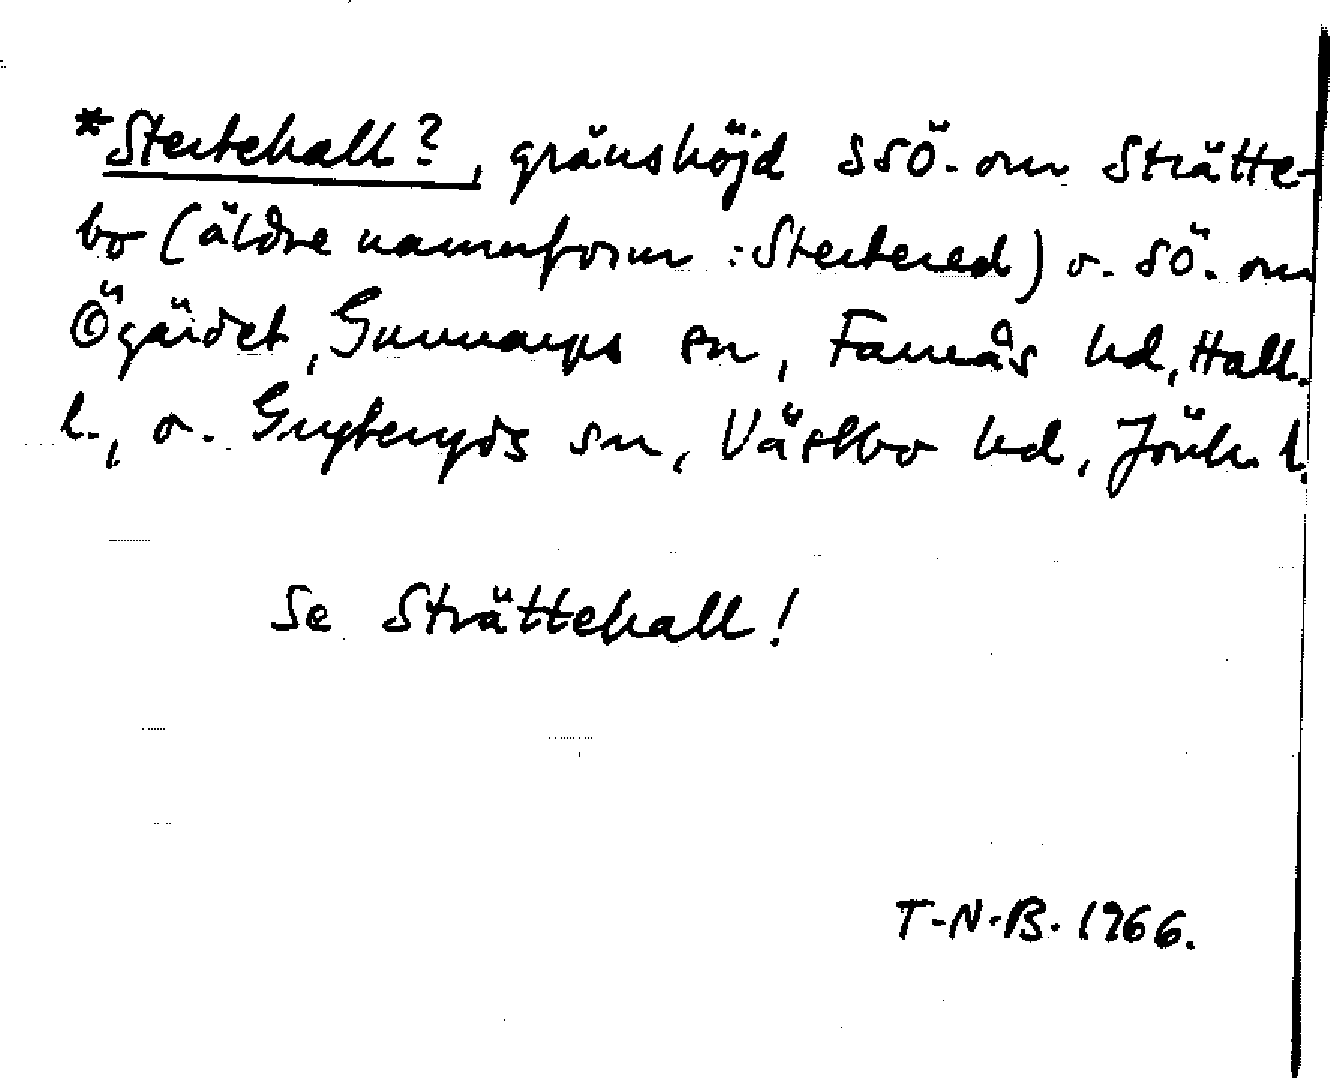 *Stertehall?, gränshöjd SSÖ. om Strätte-
bo (äldre namnform: Stertered) o. SÖ. om
Ögärdet, Gunnarps sn, Faurås hd, Hall.
l., o. Gryteryds sn, Västbo hd, Jönk. l.
Se Strättehall!
T-N.B. 1966.